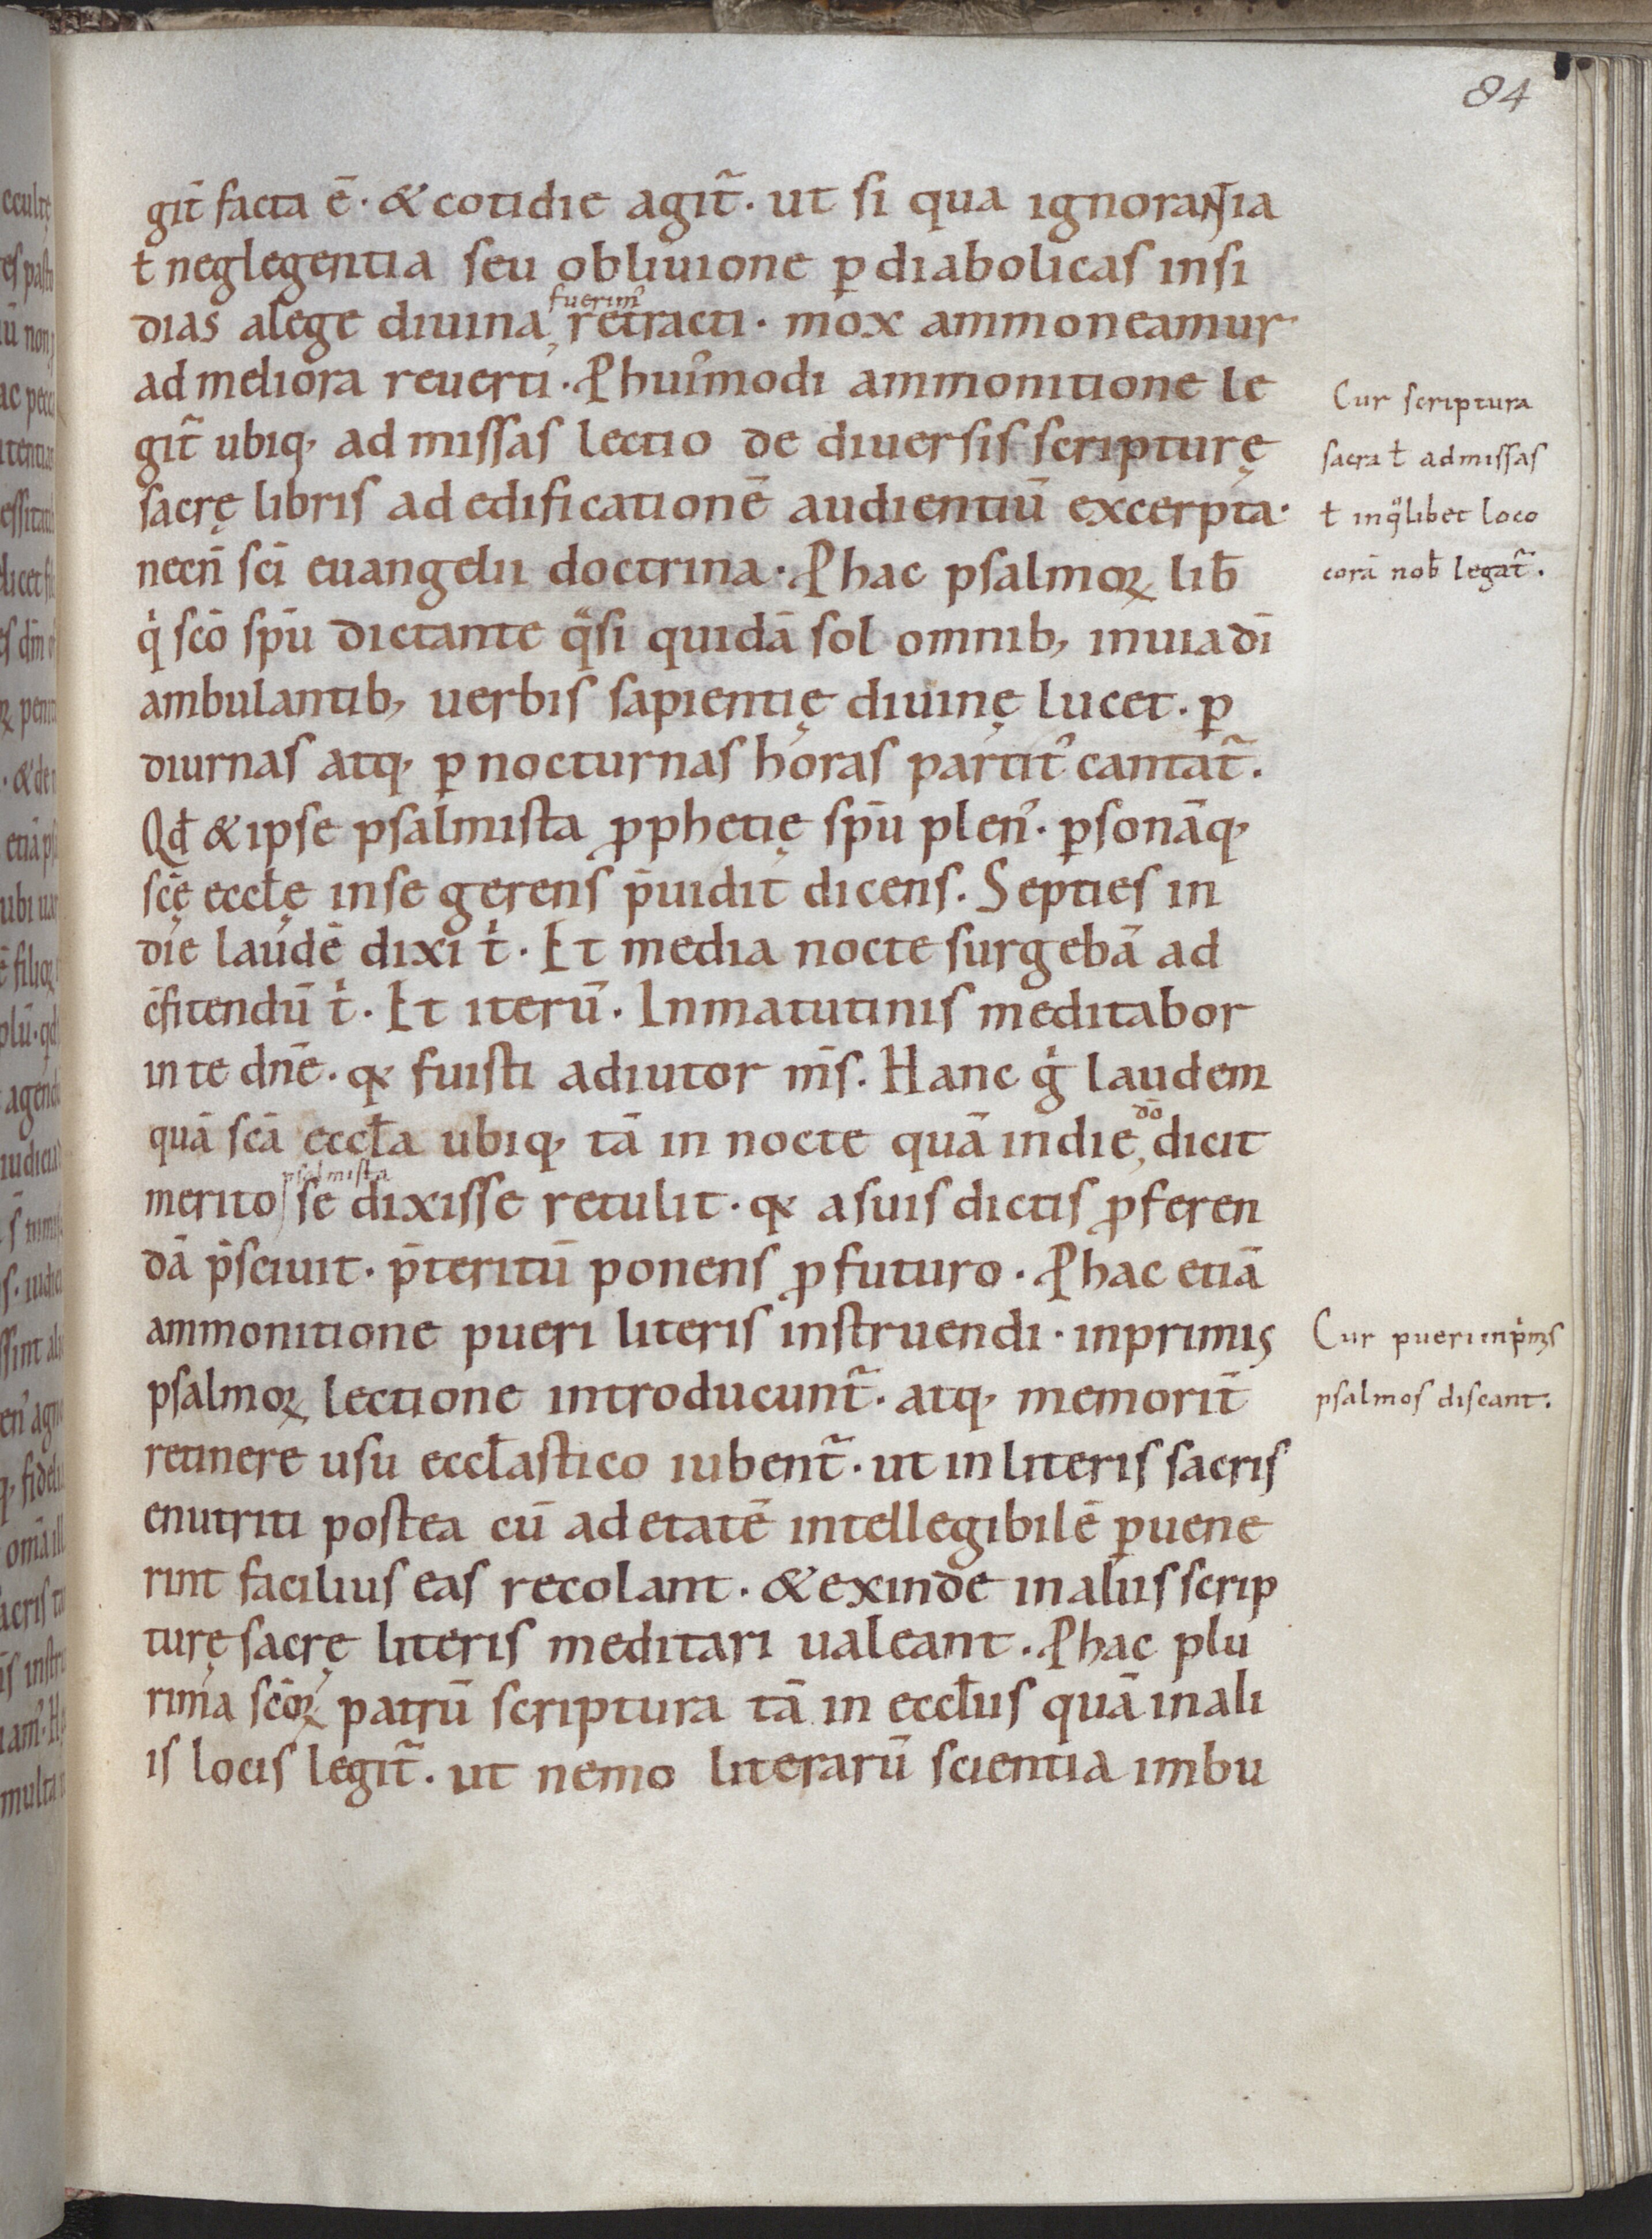 84
git̄ facta ē · & cotidie agit̃ · ut si qua ignorantia
ł neglegentia seu obliuione ꝑ diabolicas insi
dias alege diuina, fuerim᾿ retracti · mox ammoneamur·
ad meliora reuerti · Ꝑ hui᾿modi ammonitione le
git̃ ubiq, ad missas lectio de diuersis scripturę
sacrę libris ad edificationē audientiū excerpta·
necn̄ sc̄i euangelii doctrina · Ꝑ hac psalmoꝝ lib̄
qͥ sc̄o sp̄u dictante qͣsi quidā sol omnib, inuia dī
ambulantib, uerbis sapientię diuinę lucet · ꝑ
diurnas atq, ꝑ nocturnas horas partit᾿ cantat̃.
Qđ & ipse psalmista ꝓphetię sp̄u plen᾿ · ꝑsonāq,
sc̄ę eccłę inse gerens p̄uidit dicens. Septies in
die laudē dixi tͥ · Et media nocte surgebā ad
c̄fitendū tͥ · Et iterū · Inmatutinis meditabor
in te dn̄e · qꝫ fuisti adiutor m̄s. Hanc gͥ laudem
quā sc̄a eccła ubiq, tā in nocte quā indie, dō dicit
merito psalmista se dixisse retulit · qꝫ asuis dictis ꝓferen
dā p̄sciuit · p̄teritū ponens ꝓ futuro · Ꝑ hac etiā
ammonitione pueri literis instruendi · inprimis
psalmoꝝ lectione introducunt̃ · atq, memorit̄
retinere usu eccłastico iubent̃ · ut in literis sacris
enutriti postea cū ad etatē intellegibilē ꝑuene
rint facilius eas recolant · & exinde in aliis scrip
turę sacrę literis meditari ualeant · Ꝑ hac plu
rima sc̄oꝝ patrū scriptura tā in eccłiis quā in ali
is locis legit̃ · ut nemo literarū scientia imbu
Cur scriptura
sacra ł admissas
ł inqͦlibet loco
corā nob̄ legat̃.
Cur pueri inpͥmis
psalmos discant.